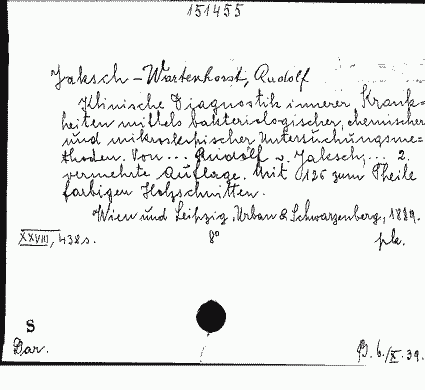 151455
Jaksch-Wartenhorst, Rudolf
Klinische Diagnostik innerer Krank=
heiten mittels bakteriologischer, chemischer
und mikroskopischer Untersuchungsme=
thoden. Von... Rudolf v. Jaksch... 2.
vermehrte Auflage. Mit 126 zum Theile
farbigen Holzschnitten.
Wien und Leipzig, Urban & Schwarzenberg, 1889.
XXVIII, 438 s. 8° pk.
S
Dar. B. 6./X. 39.